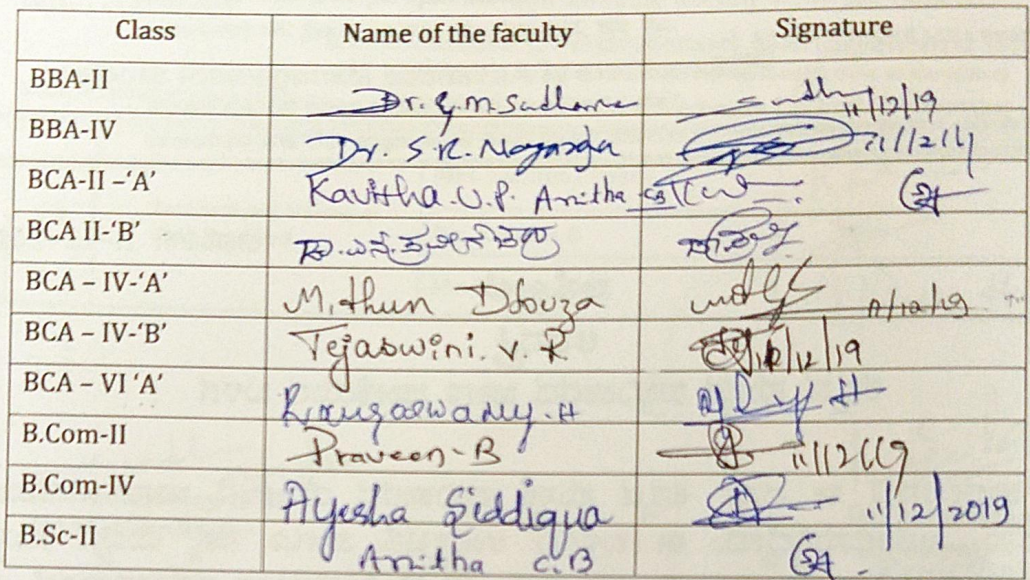 Class Name of the faculty Signature
BBA-II Dr. G.M. Sudharna 11/12/19
BBA-IV Dr. S.R. Nagaraja
BCA-II –‘A’ Kavitha U.P. Anitha CB
BCA II-‘B’
BCA – IV-‘A’ Mithun Dsouza 11/12/19
BCA – IV-‘B’ Tejaswini. V. R 12/19
BCA – VI ‘A’ Rangaswamy. H
B.Com-II Praveen-B 11/12/19
B.Com-IV Ayesha Siddiqua 11/12/2019
B.Sc-II Anitha C.B